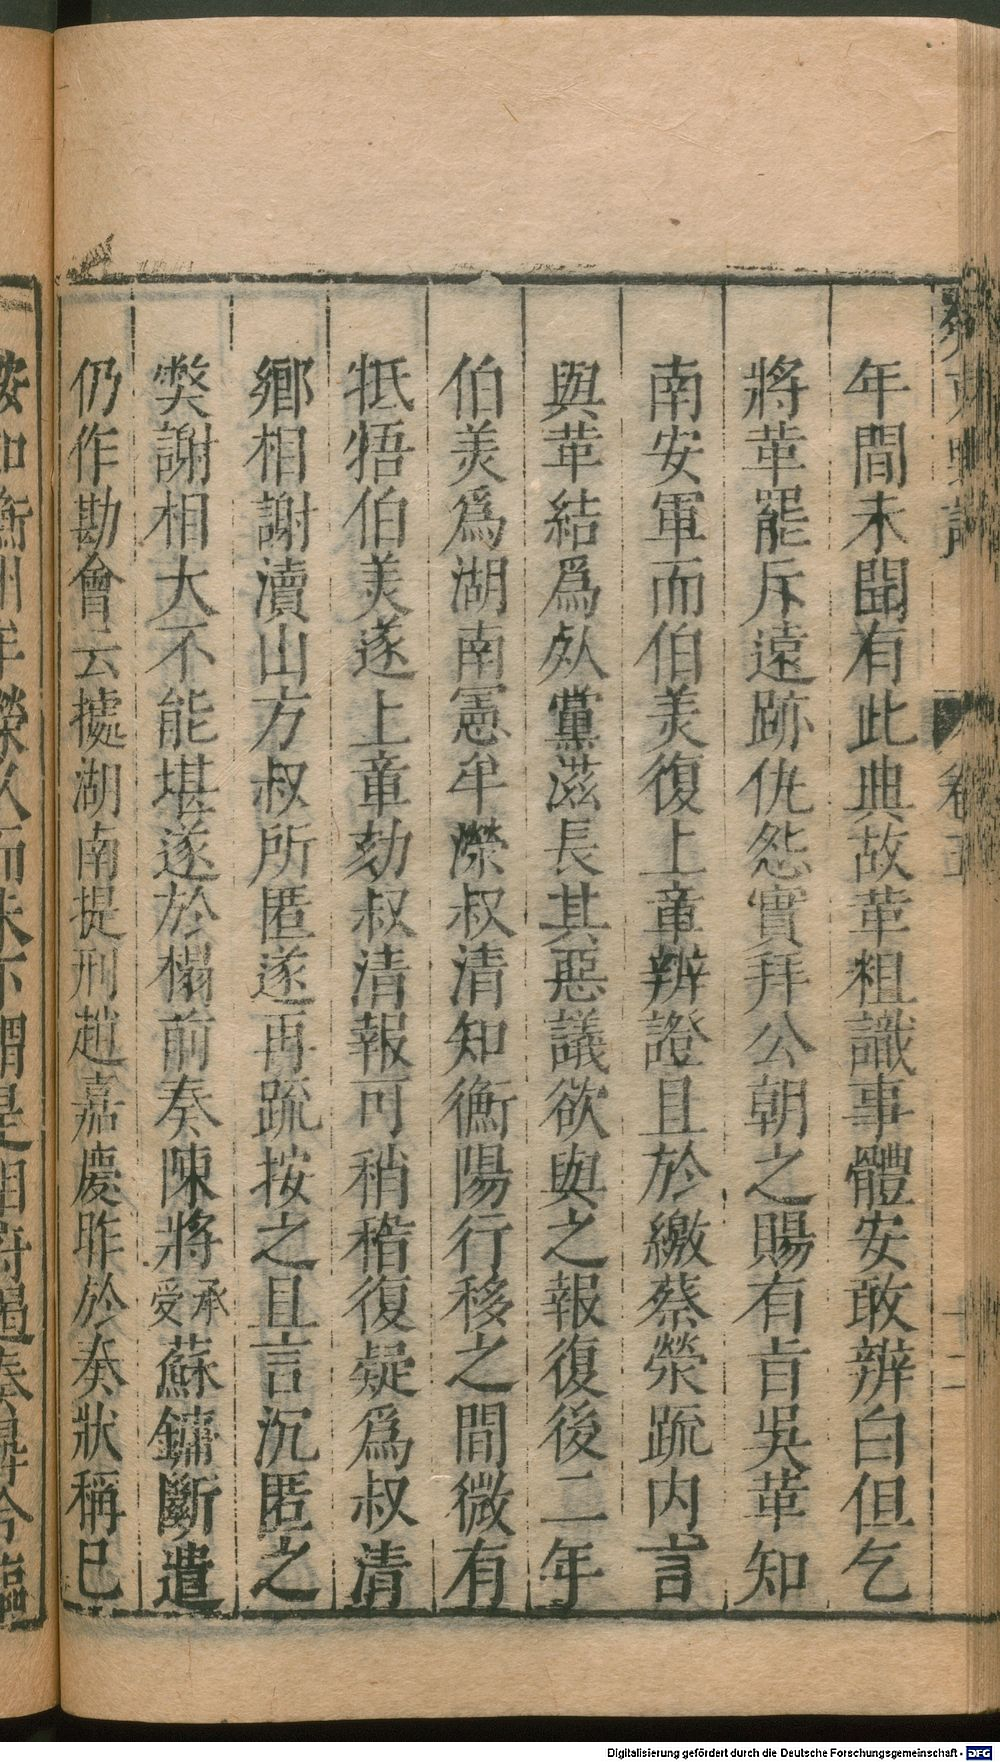 年間未聞有此典故革粗識事體安敢辨白但乞
將革罷斥遠跡仇怨實拜公朝之賜有旨吳革知
南安軍而伯羙復上章辨證且於繳蔡滎疏内言
與革結爲死黨滋長其惡議欲與之報復後二年
伯羙爲湖南憲牟濚叔清知衡陽行移之間微有
牴牾伯羙遂上章劾叔清報可稍稽復疑爲叔清
鄉相謝瀆山方叔所匿遂再疏按之且言沉匿之
弊謝相大不能堪遂於榻前奏陳將承受蘇鏞斷遣
仍作勘會云據湖南提刑趙嘉慶昨於奏狀稱已
癸辛雜識
卷五
十二
Digitalisierung gefördert durch die Deutsche Forschungsgemeinschaft - DFG